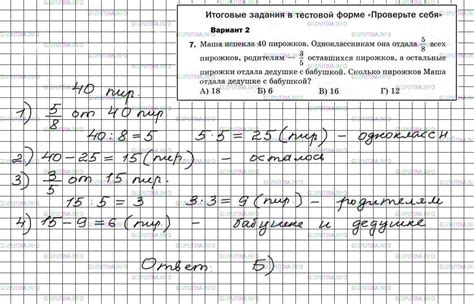 Итоговые задания в тестовой форме «Проверьте себя»
Вариант 2
7. Маша испекла 40 пирожков. Одноклассникам она отдала 5/8 всех
пирожков, родителям — 3/5 оставшихся пирожков, а остальные
пирожки отдала дедушке с бабушкой. Сколько пирожков Маша
отдала дедушке с бабушкой?
А) 18 Б) 6 В) 16 Г) 12
40 пир.
1) 5/8 от 40 пир.
40 : 8 = 5 5 · 5 = 25 (пир) – одноклассн
2) 40 – 25 = 15 (пир.) – осталось
3) 3/5 от 15 пир.
15 : 5 = 3 3 · 3 = 9 (пир) – родителям
4) 15 – 9 = 6 (пир) – бабушке и дедушке
Ответ Б)